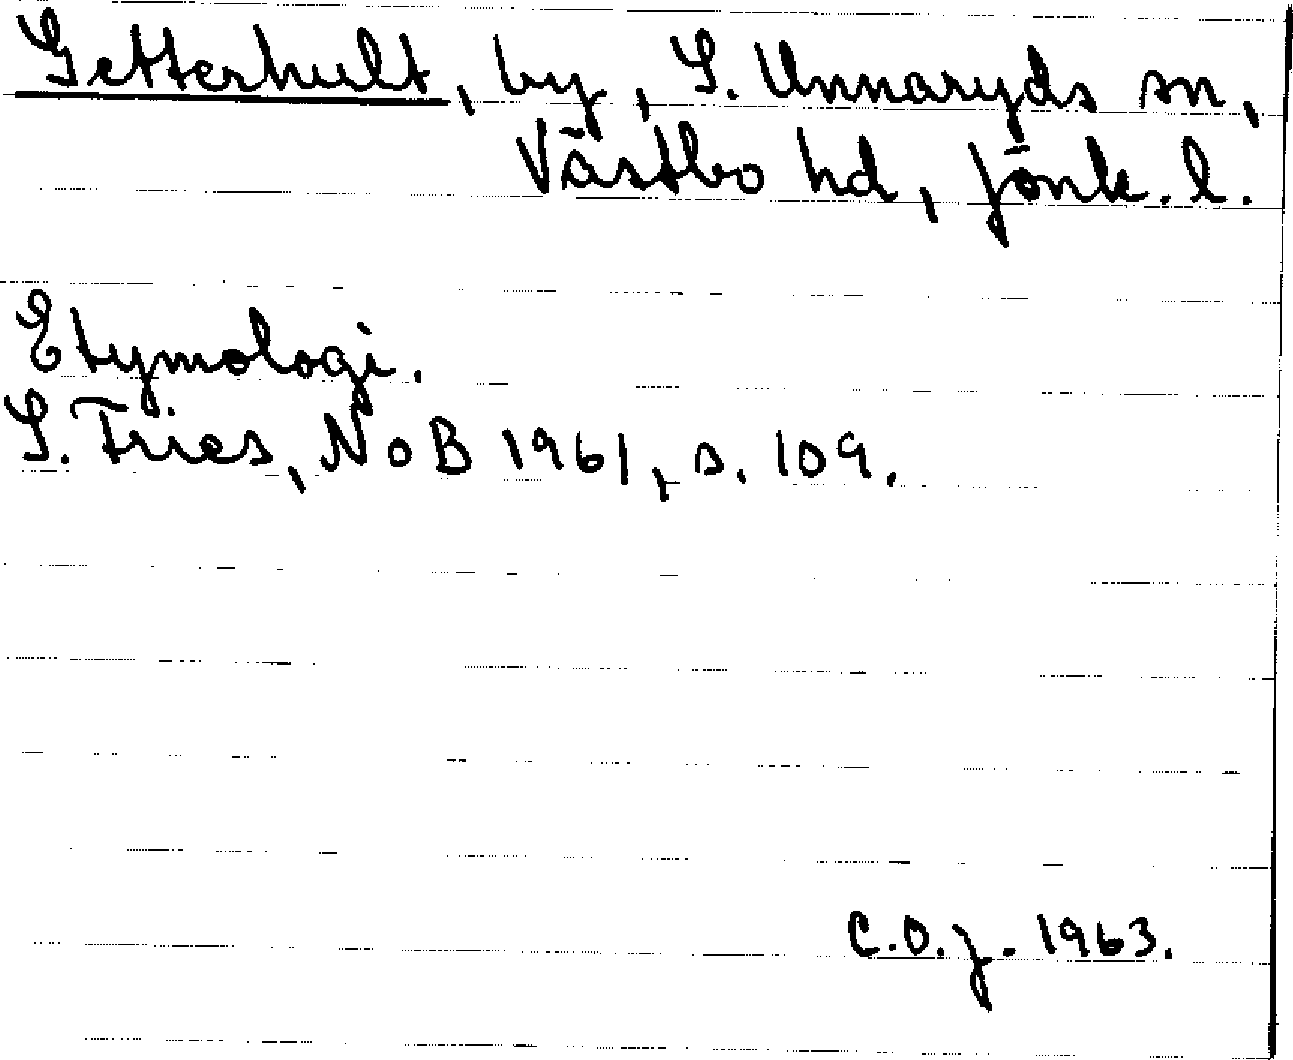 Setterhult, by, S. Unnaryds sn,
Västbo hd, Jönk. l.
Etymologi.
S. Fries, NoB 1961, s. 109.
C.O.J. 1963.